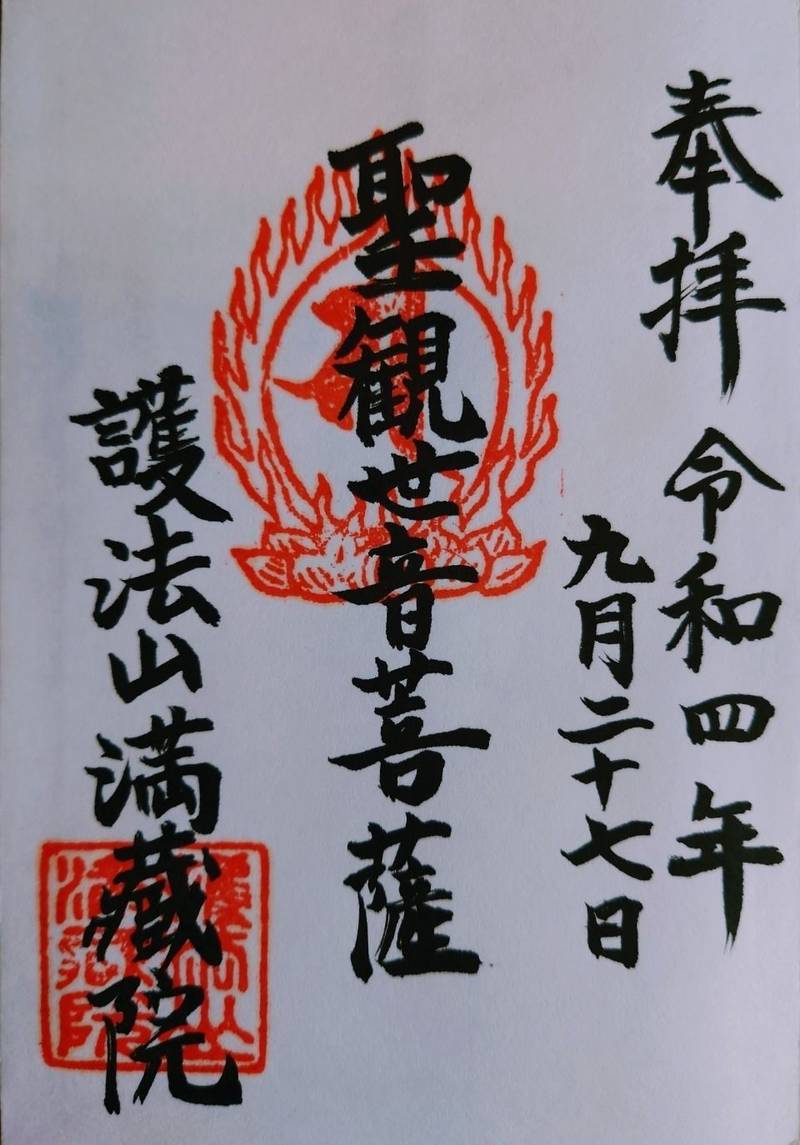 奉拝 令和四年
九月二十七日
聖観世音菩薩
護法山満蔵院